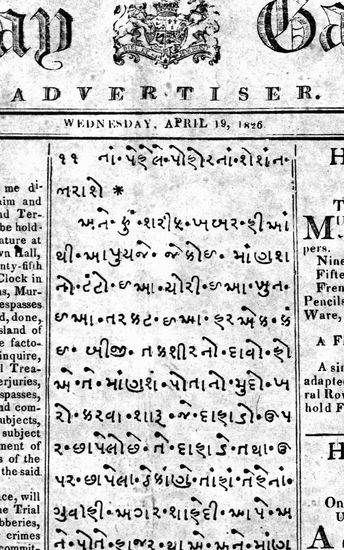 ay Ga
ADVERTISER.
WEDNESDAY, APRIL 19, 1826
me di-
aim and
nd Ter-
be hold-
ature at
wn Hall,
nty-fifth
Clock in
ns, Mur-
espasses
d, done,
sland of
e facto-
inquire,
l Trea-
erjuries,
spasses,
nd com-
ubjects,
subject
nment of
s of the
the said
ace, will
he Trial
bberies,
crimes
commit-
૧૧ નાં પેહેલે પોહોરનાં શેશંન
લરાશે *
અને કું શરીક ખબર હીઆં
થી આપુચજે જે કોઇ માંણશ
નો ટંટો ઇઆ ચોરી ઇઆ ખુન
ઇઆ તરકટ ઇઆ હરએક કં
ઇ બીજી તકશીરનો દાવો હો
એ તે માંણશં પોતાનો મુદો ખ
રો કરવા શારૂ જે દાહાડો ઉપ
ર છાપેલોછે તે દાહાડે તથા ઉ
પર છાપેલા ઠેકાંણે તાહાં તેહેના
ગુવાહી અગર શાહેદી આપે અ
ને પોતે હાજર થાએ અને માંણ
H
T
MU
pers.
Nine
Fifte
Fren
Pencils
Ware,
A F
A si
adapted
ral Row
hold F
H
On
U